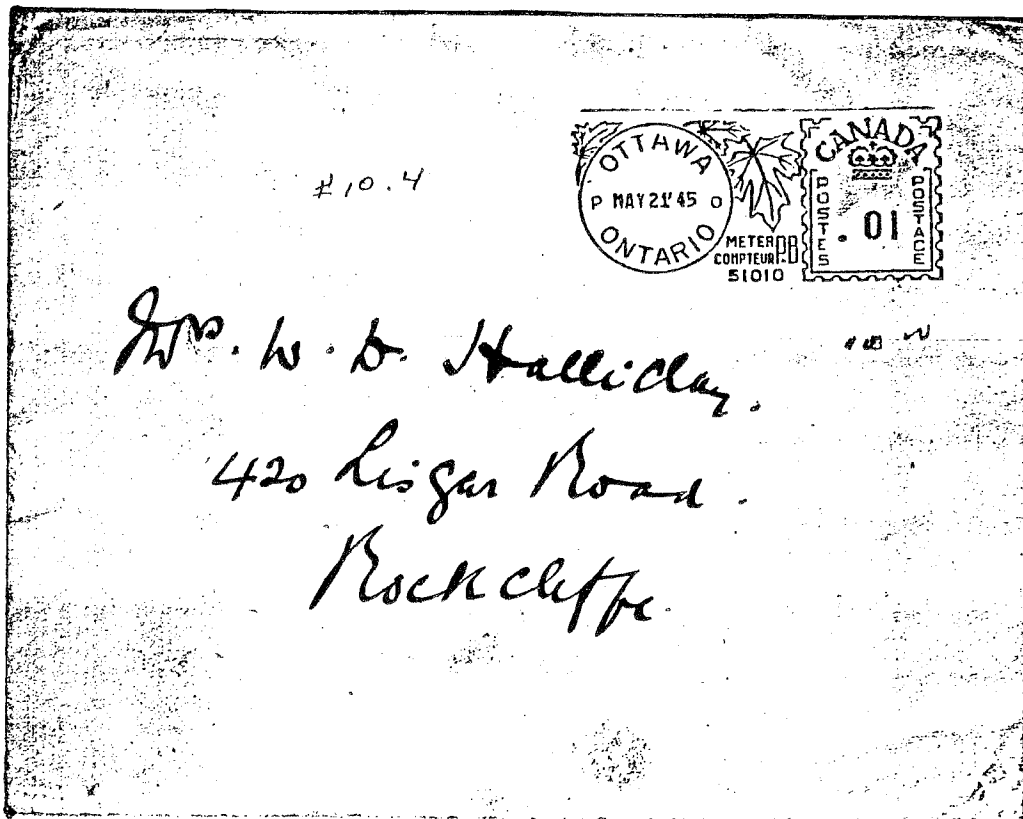 OTTAWA
P MAY 21 '45 O
ONTARIO
METER
COMPTEUR
P.B
51010
CANADA
POSTES
.01
POSTAGE
#10.4
Mrs. W. D. Halliday.
420 Lisgar Road.
Rockcliffe